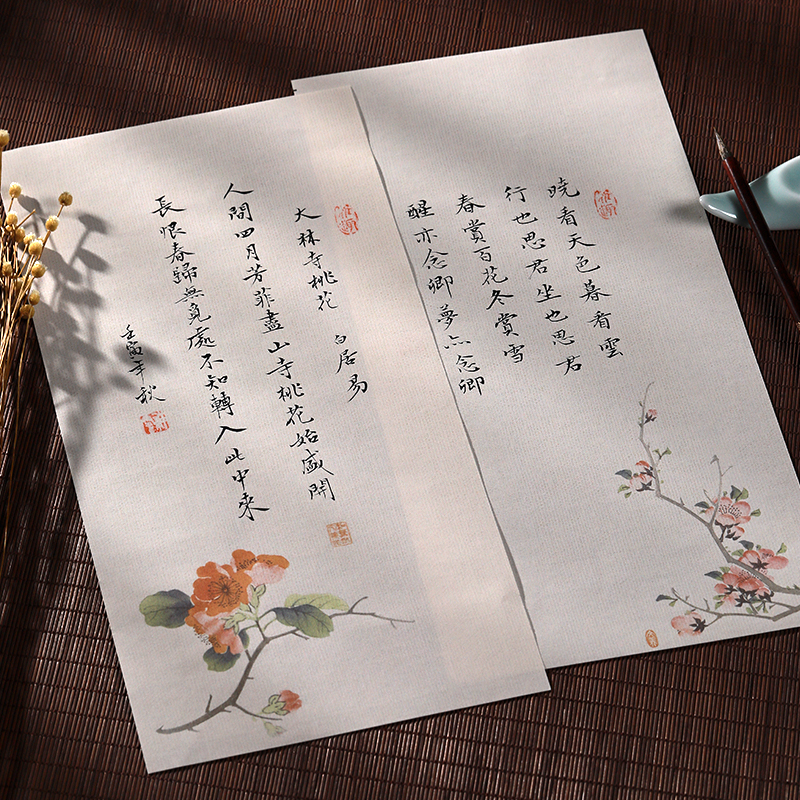 晓看天色暮看雲
行也思君坐也思君
春賞百花冬賞雪
醒亦念卿夢亦念卿
大林寺桃花 白居易
人間四月芳菲盡山寺桃花始盛開
長恨春歸無覓處不知轉入此中來
壬寅年秋